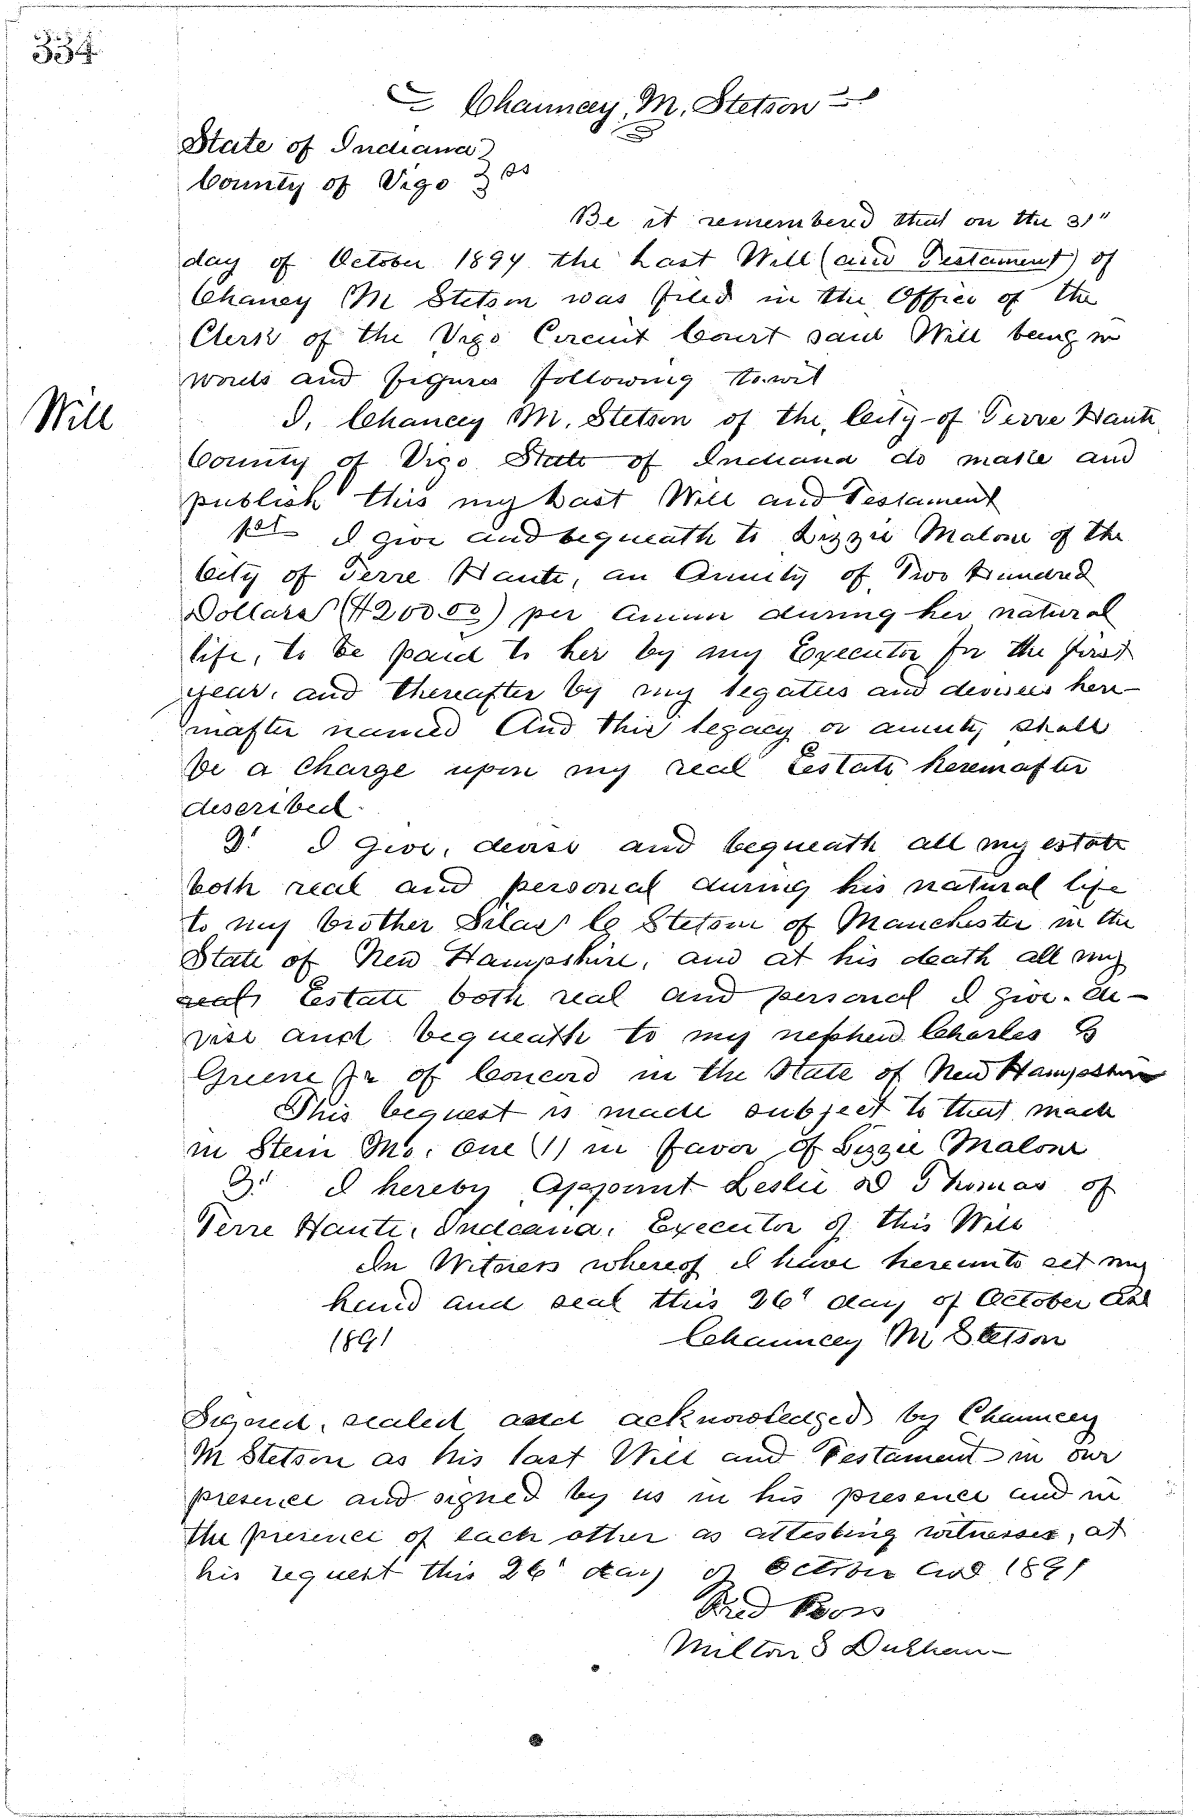 334
Chauncey, M. Stetson
State of Indiana
County of Vigo ss
Be it remembered that on the 31"
day of October 1894 the Last Will (and Testament) of
Chancy M Stetson was filed in the Office of the
Clerk of the Vigo Circuit Court said Will being in
words and figures following to.wit
Will
I, Chancey M. Stetson of the City of Terre Haute,
County of Vigo State of Indiana do make and
publish this my Last Will and Testament
1st I give and bequeath to Lizzie Malone of the
City of Terre Haute, an Annuity of Two Hundred
Dollars ($200.00) per Annum during her natural
life, to be paid to her by my Executor for the first
year, and thereafter by my legatees and devisees here-
inafter named And this legacy or annuity shall
be a Charge upon my real Eestate hereinafter
described.
2' I give, devise and bequeath all my estate
both real and personal during his natural life
to my brother Silas C Stetson of Manchester in the
State of New Hampshire, and at his death all my
real Eestate both real and personal I give. de-
vise and bequeath to my nephew Charles G
Greene Jr of Concord in the State of New Hampshire
This bequest is made subject to that made
in Item No. One (1) in favor of Lizzie Malone
3" I hereby Appoint Leslie D Thomas of
Terre Haute, Indeana, Executor of this Will
In Witness whereof I have hereunto set my
hand and seal this 26" day of October AD
1891 Chauncey M Stetson
Signed, sealed and acknowledged by Chauncey
M Stetson as his last Will and Testament in our
presence and signed by us in his presence and in
the presence of each other as attesting witnesses, at
his request this 26' day of October AD 1891
Fred Ross
Milton S Durham